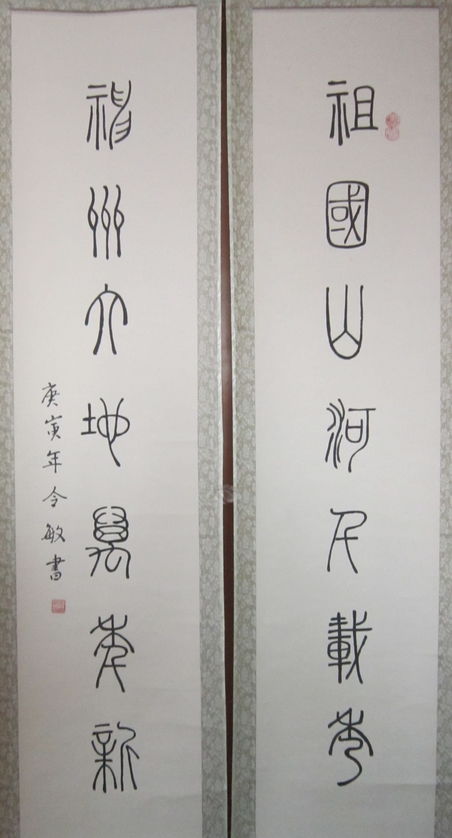 祖國山河千載秀
神州大地萬年新
庚寅年令敏書